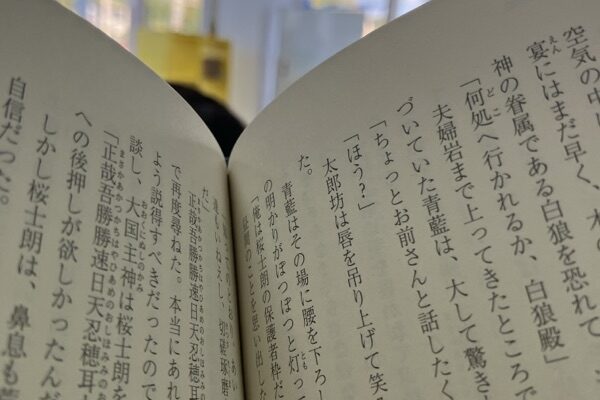 空気の中
宴にはまだ早く、木の
神の眷属である白狼を恐れて
「何処へ行かれるか、白狼殿」
夫婦岩まで上ってきたところで
づいていた青藍は、大して驚き
「ちょっとお前さんと話したく
「ほう？」
太郎坊は唇を吊り上げて笑
た。
青藍はその場に腰を下ろし
の明かりがぽつぽつと灯って
「俺は桜士朗の保護者枠だ
昼間のことを思い出した
切磋琢磨
違もいねえし、
だ」
正哉吾勝勝速日天忍穂耳
で再度尋ねた。本当にあれ
よう説得すべきだったので
談し、大国主神は桜士朗を
「正哉吾勝勝速日天忍穂耳
への後押しが欲しかったんだ
しかし桜士朗は、鼻息も
自信だった。